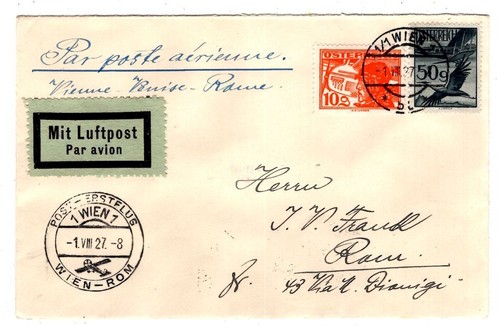 Par poste aérienne.
Vienne - Venise - Rome
Mit Luftpost
Par avion
ÖSTERREICH
10g
ÖSTERREICH
50g
1/1 WIEN
-1.VIII.27
POST-ERSTFLUG
1 WIEN 1
-1.VIII 27.-8
WIEN-ROM
Herrn
J. V. Frankl
Rom
43 Via S. Dionigi